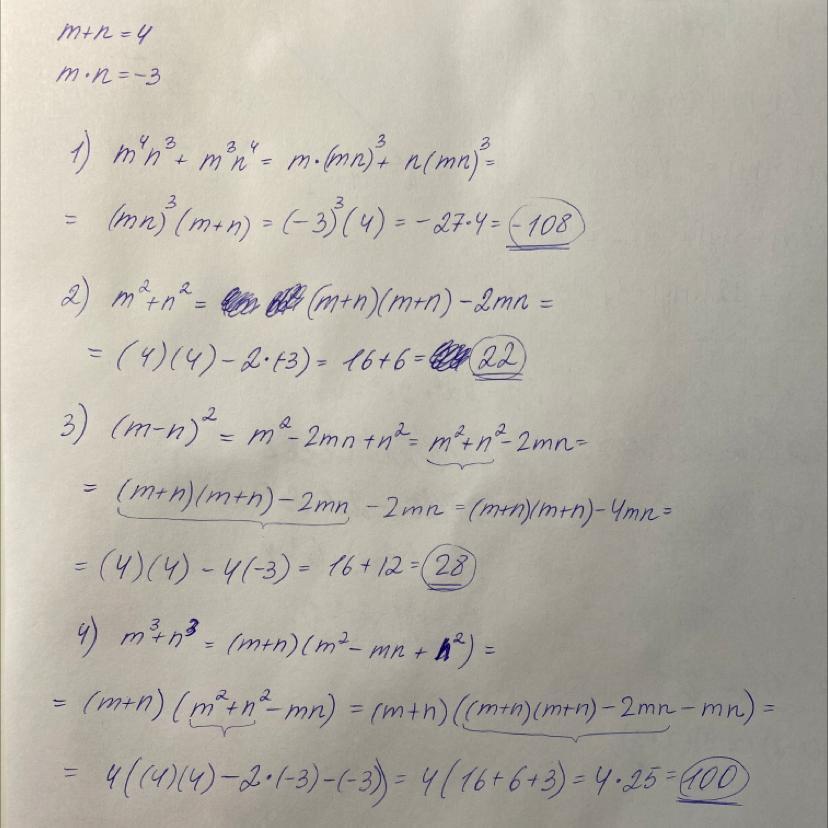 m+n=4
m·n=-3
1) m⁴n³+ m³n⁴= m·(mn)³+ n(mn)³=
= (mn)³(m+n) = (-3)³(4) = -27·4= -108
2) m²+n² = (m+n)(m+n) - 2mn =
= (4)(4) - 2·(-3) = 16+6 = 22
3) (m-n)² = m² - 2mn + n² = m²+n² - 2mn =
= (m+n)(m+n) - 2mn - 2mn = (m+n)(m+n) - 4mn =
= (4)(4) - 4(-3) = 16+12 = 28
4) m³+n³ = (m+n)(m² - mn + n²) =
= (m+n)(m²+n² - mn) = (m+n)((m+n)(m+n) - 2mn - mn) =
= 4((4)(4) - 2·(-3) - (-3)) = 4(16+6+3) = 4·25 = 100